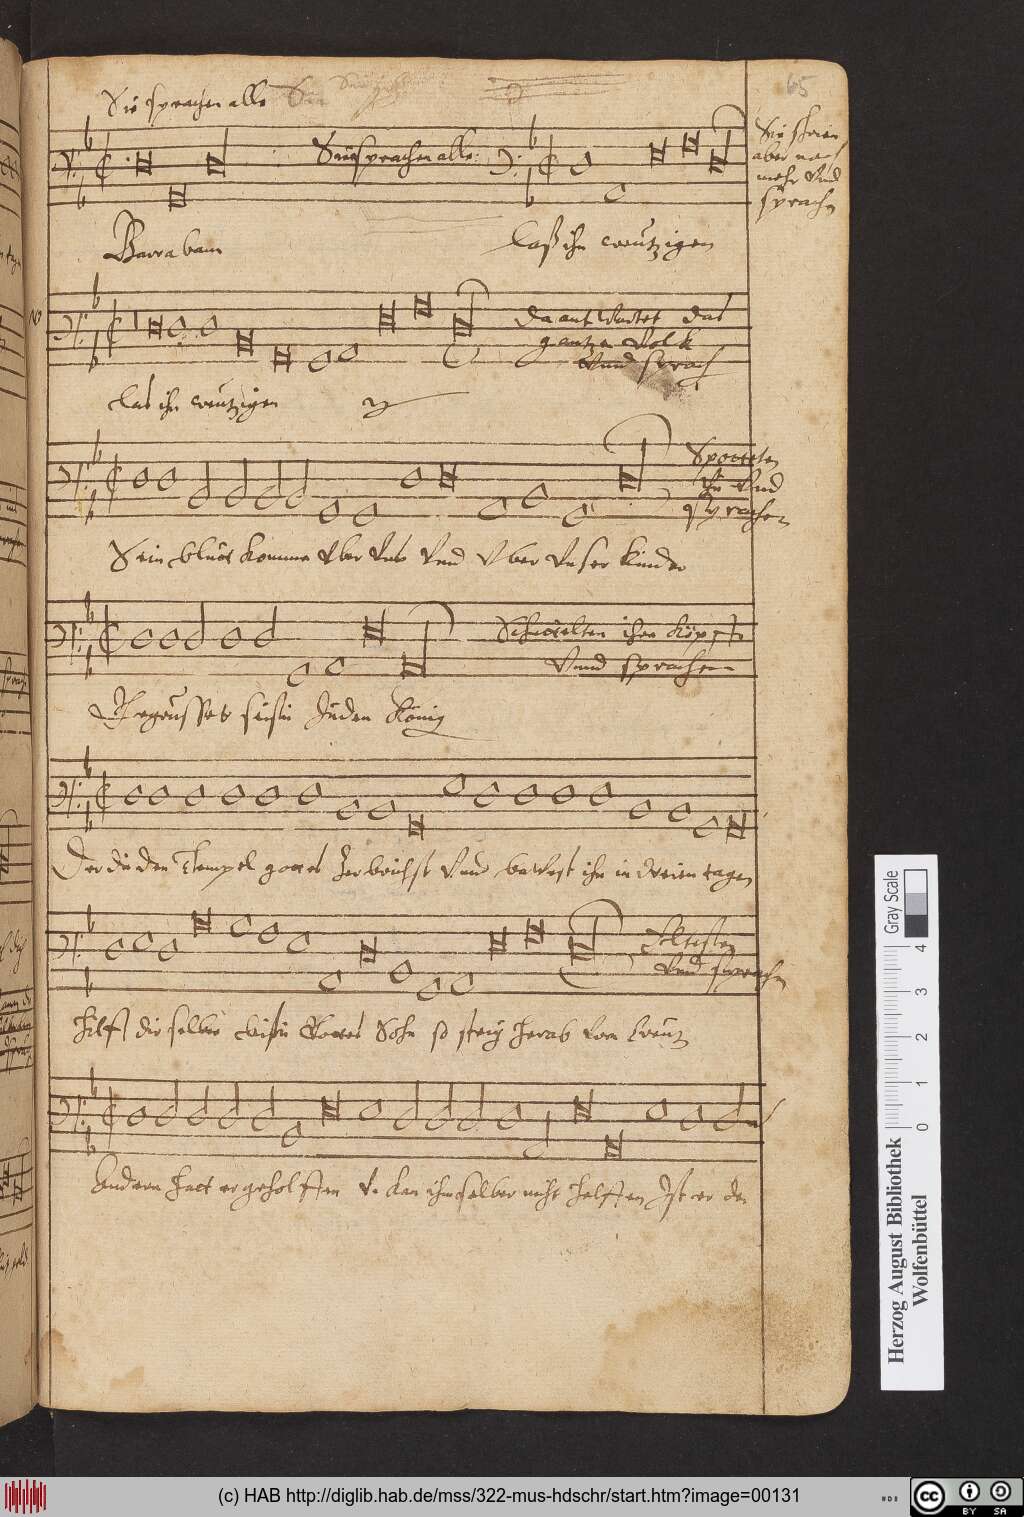 65
Sie sprachen alle
Sie sprachen alle:
Sie schrien
aber noch
mehr Vnd
sprachen
Barrabam
laß ihn creutzigen
Da antwortet das
gantze Volk
Vnnd sprach
las ihn creutzigen
Spotteten
Vnd
sprachen
Sein bluet komme Vber Vns Vnd Vber Vnser kinder
ihre köpffe
Vnnd sprachen
Gegrüsset seistu Juden König
Der du den Tempel gottes zerbrichst Vnd bawest ihn in dreien tagen
Eltesten
Vnd sprachen
Hilff dir selber bistu Gottes Sohn so steig herab vom Creutz
Andern hatt er geholffen V. kan ihm selber nicht helffen Ist er der
Gray Scale
0 1 2 3 4
Herzog August Bibliothek
Wolfenbüttel
(c) HAB http://diglib.hab.de/mss/322-mus-hdschr/start.htm?image=00131
cc BY SA